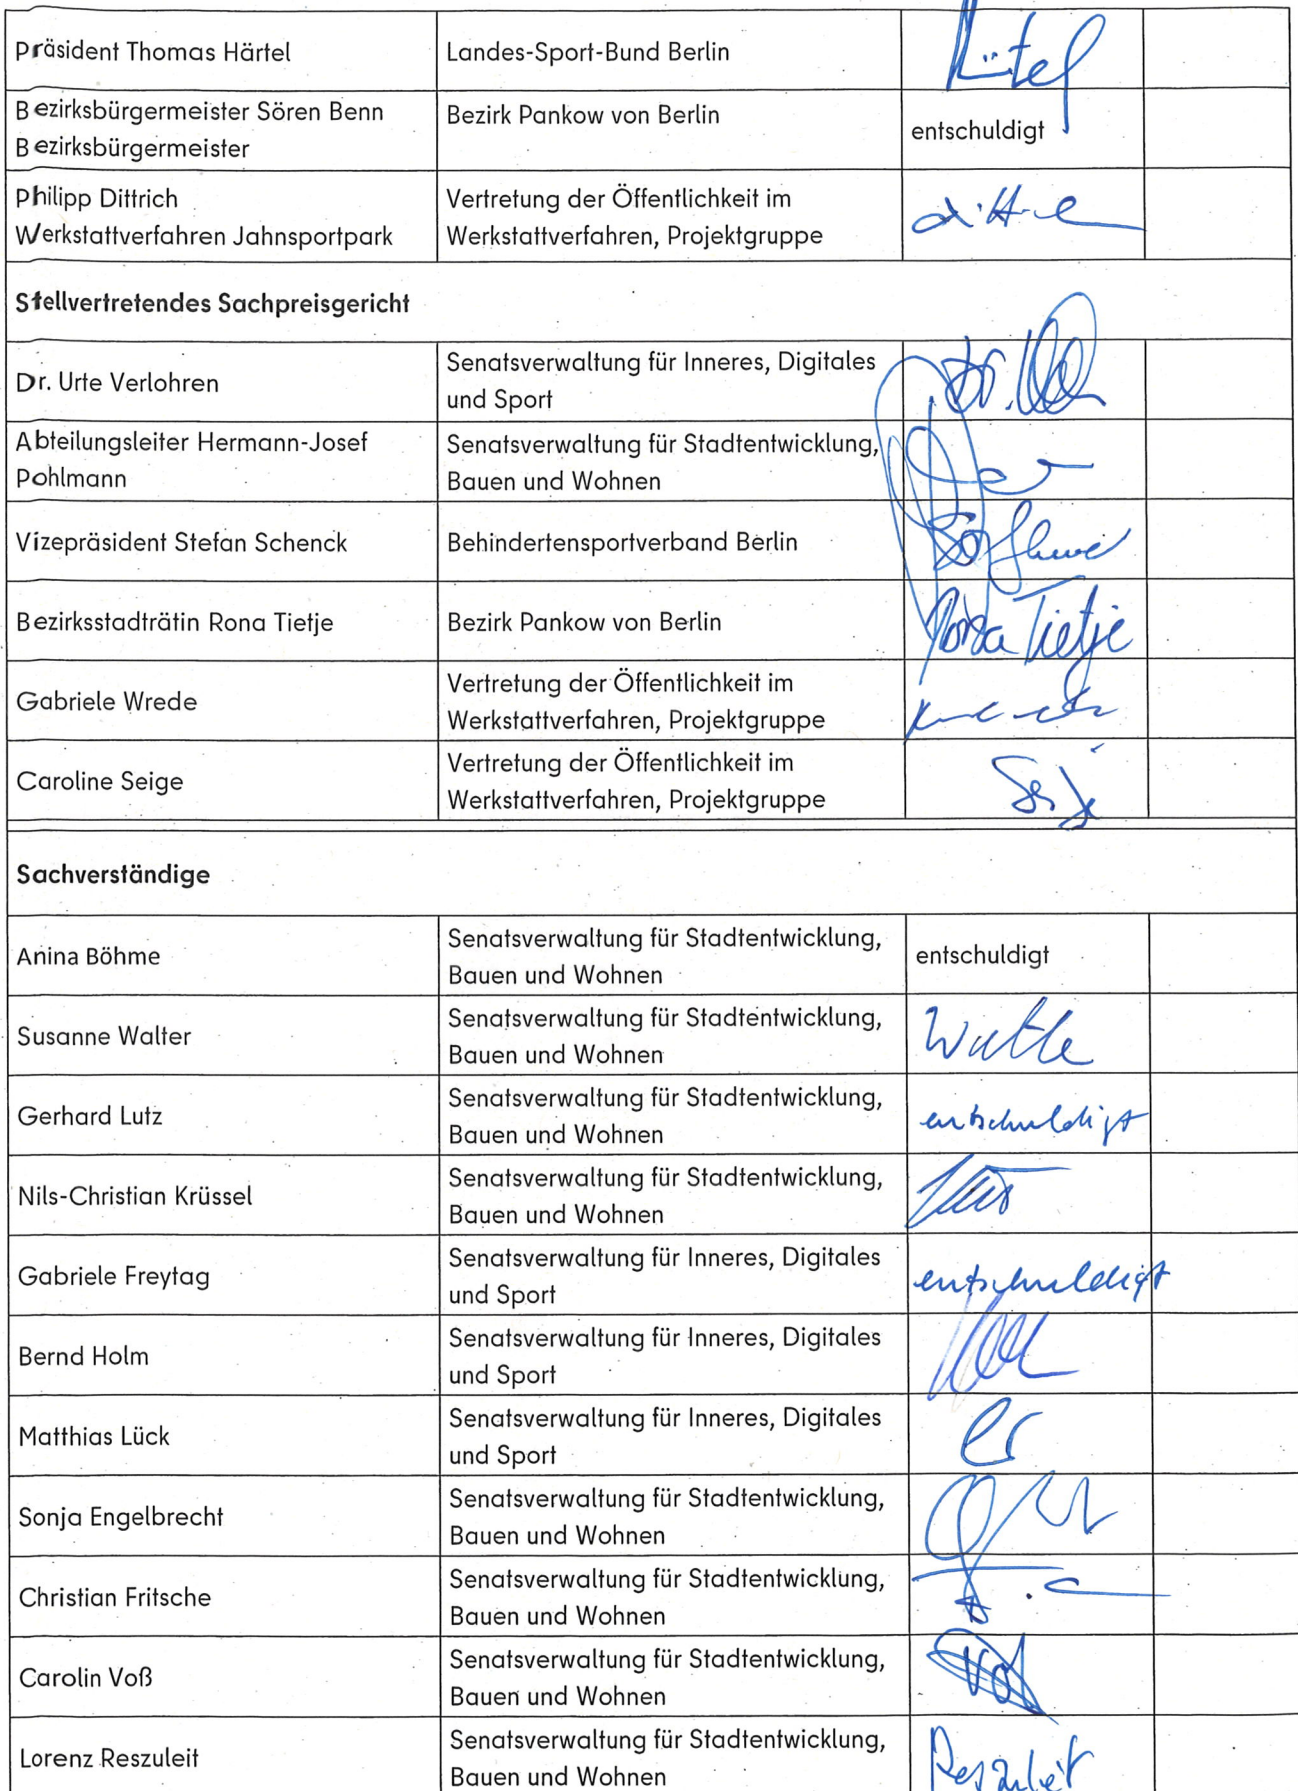 Präsident Thomas Härtel
Landes-Sport-Bund Berlin
Bezirksbürgermeister Sören Benn
Bezirksbürgermeister
Bezirk Pankow von Berlin
entschuldigt
Philipp Dittrich
Werkstattverfahren Jahnsportpark
Vertretung der Öffentlichkeit im
Werkstattverfahren, Projektgruppe
Stellvertretendes Sachpreisgericht
Dr. Urte Verlohren
Senatsverwaltung für Inneres, Digitales
und Sport
Abteilungsleiter Hermann-Josef
Pohlmann
Senatsverwaltung für Stadtentwicklung,
Bauen und Wohnen
Vizepräsident Stefan Schenck
Behindertensportverband Berlin
Bezirksstadträtin Rona Tietje
Bezirk Pankow von Berlin
Rona Tietje
Gabriele Wrede
Vertretung der Öffentlichkeit im
Werkstattverfahren, Projektgruppe
Caroline Seige
Vertretung der Öffentlichkeit im
Werkstattverfahren, Projektgruppe
Sachverständige
Anina Böhme
Senatsverwaltung für Stadtentwicklung,
Bauen und Wohnen
entschuldigt
Susanne Walter
Senatsverwaltung für Stadtentwicklung,
Bauen und Wohnen
Gerhard Lutz
Senatsverwaltung für Stadtentwicklung,
Bauen und Wohnen
entschuldigt
Nils-Christian Krüssel
Senatsverwaltung für Stadtentwicklung,
Bauen und Wohnen
Gabriele Freytag
Senatsverwaltung für Inneres, Digitales
und Sport
entschuldigt
Bernd Holm
Senatsverwaltung für Inneres, Digitales
und Sport
Matthias Lück
Senatsverwaltung für Inneres, Digitales
und Sport
Sonja Engelbrecht
Senatsverwaltung für Stadtentwicklung,
Bauen und Wohnen
Christian Fritsche
Senatsverwaltung für Stadtentwicklung,
Bauen und Wohnen
Carolin Voß
Senatsverwaltung für Stadtentwicklung,
Bauen und Wohnen
Lorenz Reszuleit
Senatsverwaltung für Stadtentwicklung,
Bauen und Wohnen
Reszuleit